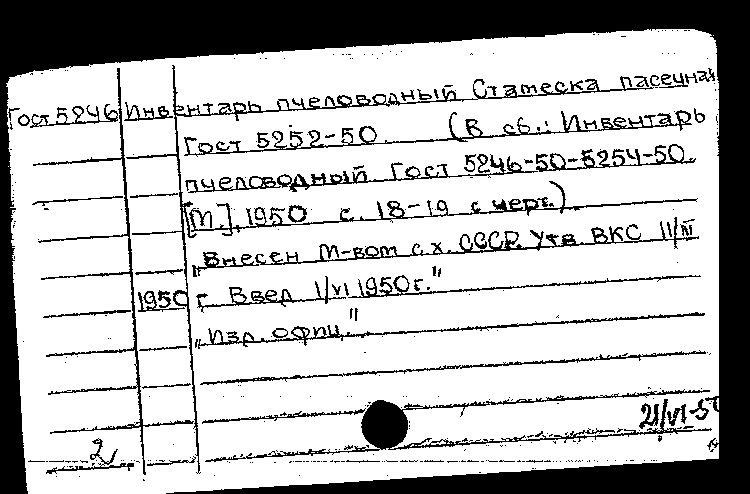 Гост 5246 Инвентарь пчеловодный Стамеска пасечная
Гост 5252-50 (В сб.: Инвентарь
пчеловодный Гост 5246-50-5254-50.
[М.], 1950 с. 18-19 с черт.)
„Внесен М-вом с.х. СССР. Утв. ВКС 11/III
1950 г. Введ 1/VI 1950г."
„Изд. офиц."
21/VI-5
2